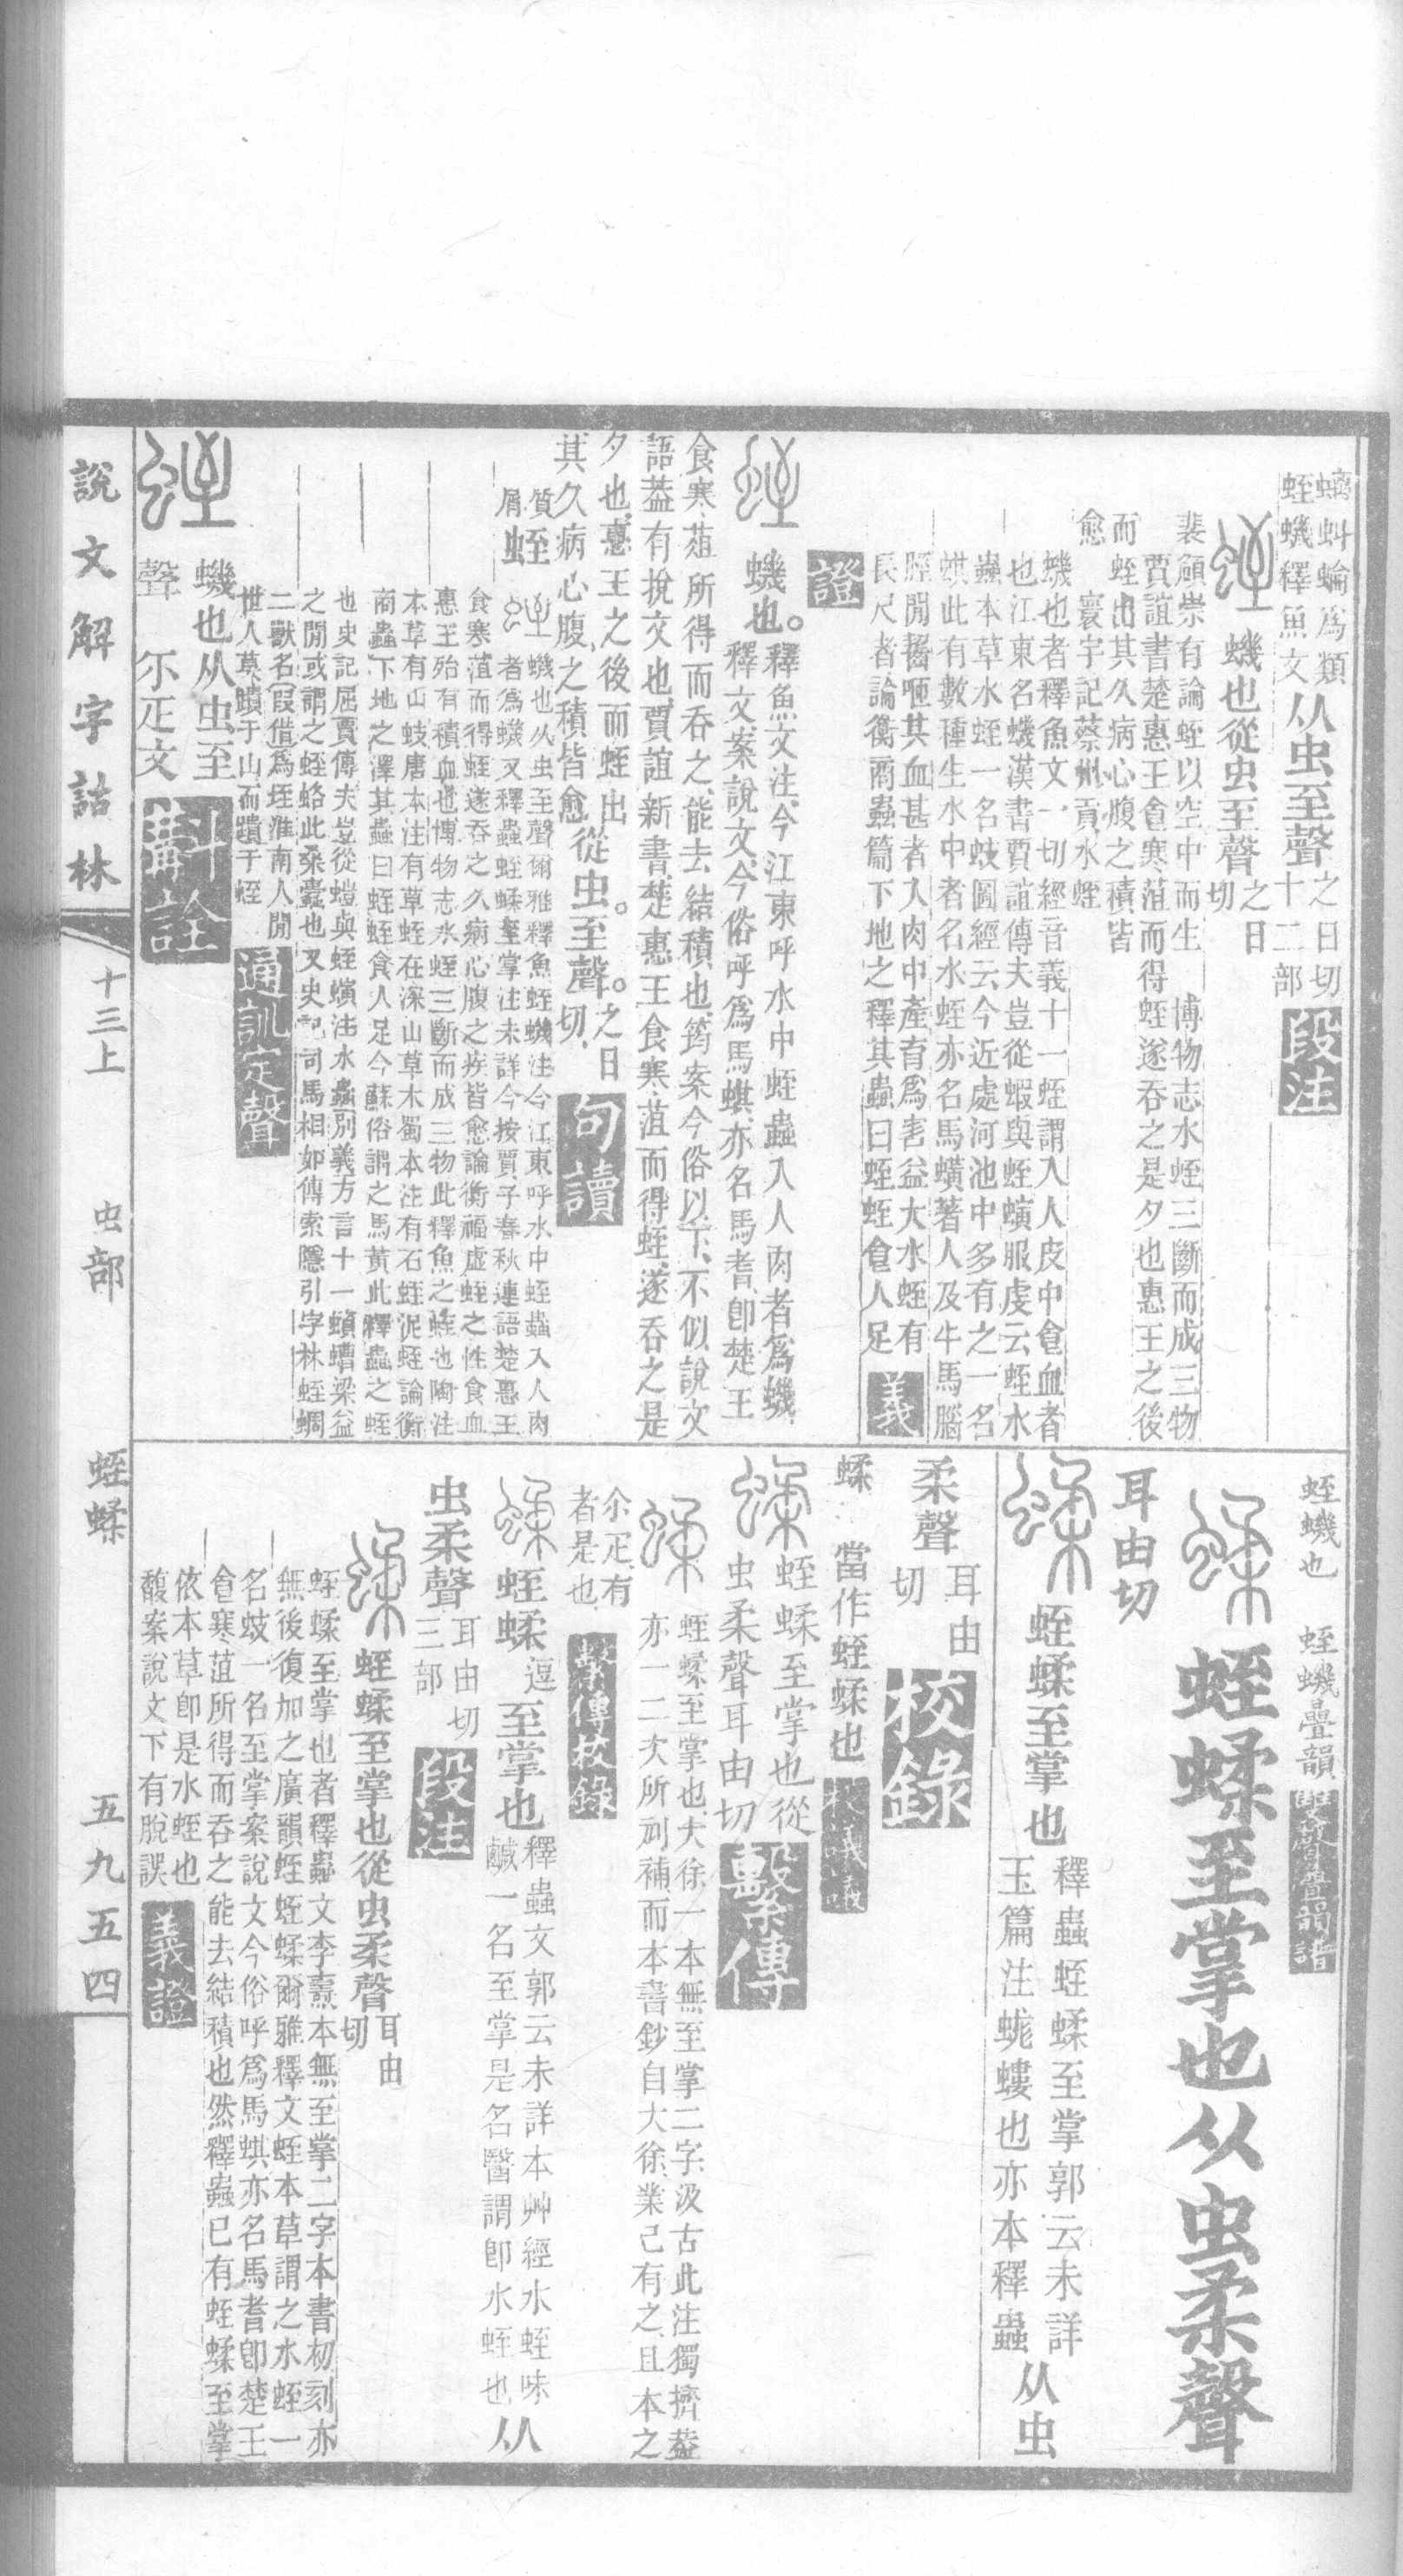 蠐蚪蝓爲類
蛭蟣釋魚文从虫至聲之日切十二部 段注
蟣也從虫至聲之日切
裴頠崇有論蛭以空中而生 博物志水蛭三斷而成三物
賈誼書楚惠王食寒菹而得蛭遂吞之是夕也惠王之後
而蛭出其久病心腹之積皆
愈 寰宇記蔡州貢水蛭
蟣也者釋魚文一切經音義十一蛭謂入人皮中食血者
也江東名蟣漢書賈誼傳夫豈從蝦與蛭螾服虔云蛭水
蟲本草水蛭一名蚑圖經云今近處河池中多有之一名
蜞此有數種生水中者名水蛭亦名馬蟥著人及牛馬腦
脛閒齧咂其血甚者入肉中產育爲害益大水蛭有
長尺者論衡商蟲篇下地之釋其蟲曰蛭蛭食人足 義
證
蟣也。釋魚文注今江東呼水中蛭蟲入人肉者爲蟣
釋文案說文今俗呼爲馬蜞亦名馬耆卽楚王
食寒菹所得而吞之能去結積也筠案今俗以下不似說文
語葢有挩文也賈誼新書楚惠王食寒菹而得蛭遂吞之是
夕也惠王之後而蛭出。
其久病心腹之積皆愈從虫至聲。之日切 句讀
質屑蛭 蟣也从虫至聲爾雅釋魚蛭蟣注今江東呼水中蛭蟲入人肉
者爲蟣又釋蟲蛭蝚至掌注未詳今按賈子春秋連語楚惠王
食寒菹而得蛭遂吞之久病心腹之疾皆愈論衡福虛蛭之性食血
惠王殆有積血也博物志水蛭三斷而成三物此釋魚之蛭也陶注
本草有山蚑唐本注有草蛭在深山草木蜀本注有石蛭泥蛭論衡
商蟲下地之澤其蟲曰蛭蛭食人足今蘇俗謂之馬黃此釋蟲之蛭
也史記屈賈傳夫豈從螘與蛭螾注水蟲別義方言十一蠀螬梁益
之閒或謂之蛭蛒此桑蠹也又史記司馬相如傳索隱引字林蛭蜩
二獸名假借爲垤淮南人閒
世人莫蹪于山而蹪于蛭 通訓定聲
蟣也从虫至
聲 尒疋文 斠詮
蛭蟣也 蛭蟣疊韻 雙聲疊韻譜
蛭蝚至掌也从虫柔聲
耳由切
蛭蝚至掌也釋蟲蛭蝚至掌郭云未詳
玉篇注蛖螻也亦本釋蟲从虫
柔聲耳由切 校錄
蝚 當作蛭蝚也 校議議
蛭蝚至掌也從
虫柔聲耳由切 繫傳
蛭蝚至掌也大徐一本無至掌二字汲古此注獨擠葢
亦一二次所刓補而本書鈔自大徐業已有之且本之
尒疋有
者是也 繫傳校錄
蛭蝚逗至掌也釋蟲文郭云未詳本艸經水蛭味
鹹一名至掌是名醫謂卽水蛭也从
虫柔聲耳由切三部 段注
蛭蝚至掌也從虫柔聲耳由切
蛭蝚至掌也者釋蟲文李燾本無至掌二字本書初刻亦
無後復加之廣韻蛭蛭蝚爾雅釋文蛭本草謂之水蛭一
名蚑一名至掌案說文今俗呼爲馬蜞亦名馬耆卽楚王
食寒菹所得而吞之能去結積也然釋蟲已有蛭蝚至掌
依本草卽是水蛭也
馥案說文下有脫誤 義證
說文解字詁林 十三上 虫部 蛭蝚 五九五四